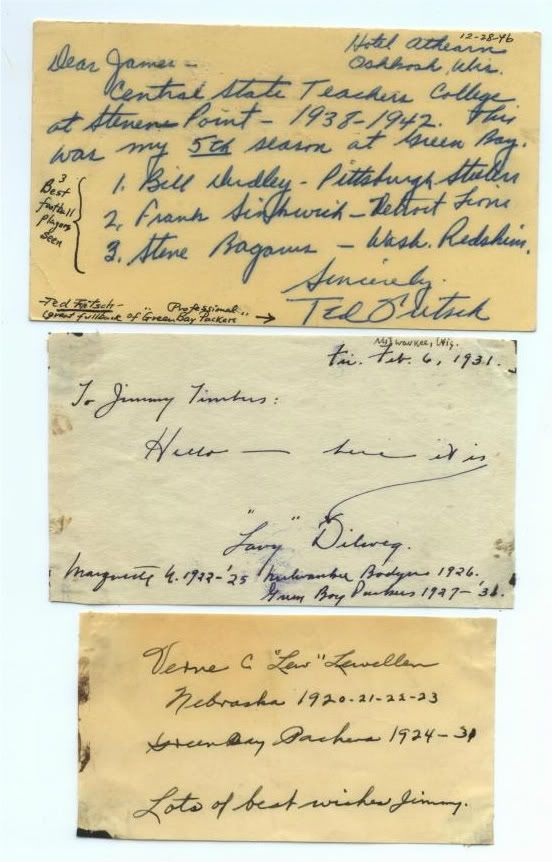 12-28-46
Hotel Athearn
Oshkosh, Wis.
Dear James -
Central State Teachers College
at Stevens Point - 1938-1942. This
was my 5th season at Green Bay.
3 Best football players seen
1. Bill Dudley - Pittsburgh Steelers
2. Frank Sinkwich - Detroit Lions
3. Steve Bagarus - Wash. Redskins.
Sincerely,
Ted Fritsch
-Ted Fritsch-
(great fullback of "Green Bay Packers" "Professional" →
Milwaukee, Wis.
Fri. Feb. 6, 1931.
To Jimmy Timbers:
Hello — here it is
"Lavy" Dilweg.
Marquette U. 1922-'25 Milwaukee Badgers 1926.
Green Bay Packers 1927-'31.
Verne C "Lew" Lewellen
Nebraska 1920-21-22-23
Green Bay Packers 1924-31
Lots of best wishes Jimmy.